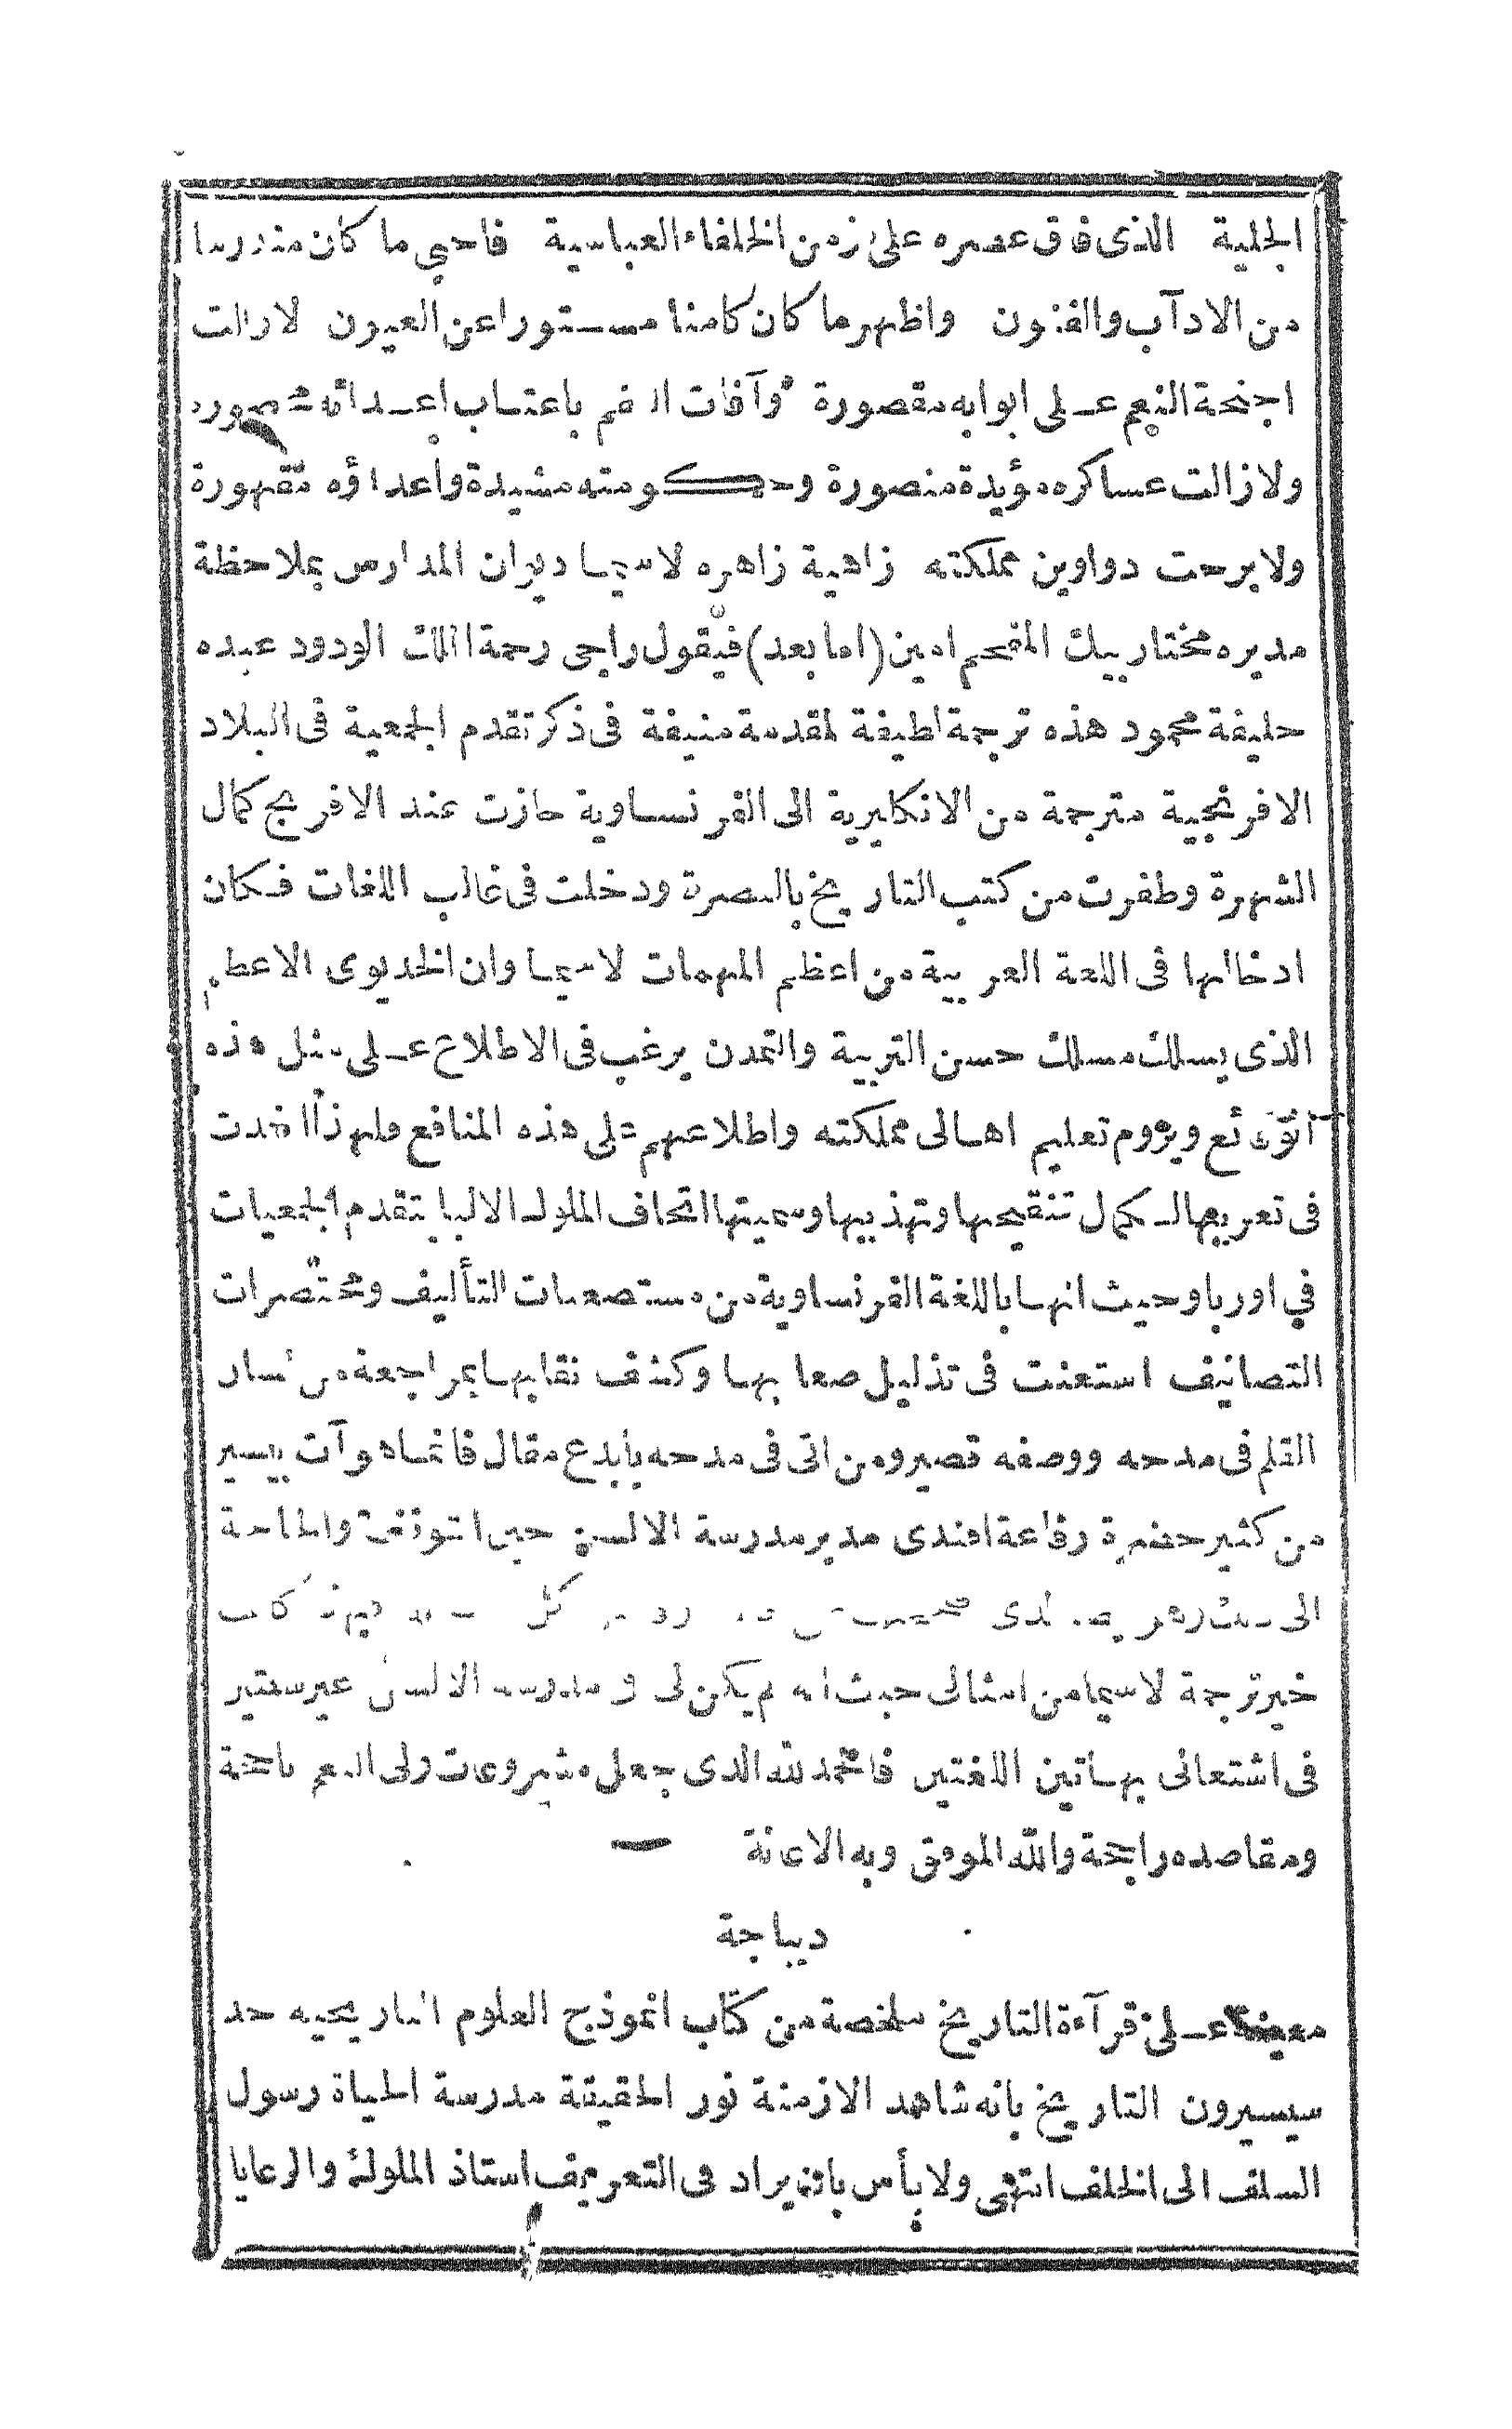 الجلية الذى فاق عصره على زمن الخلفاء العباسية فاحيي ما كان مندرسا
من الادآب والفنون واظهر ما كان كامنا مستورا عن العيون لازالت
اجنحة النعم على ابوابه مقصورة وآفات النقم باعتاب اعدائه محصورة
ولا زالت عساكره مؤيدة منصورة وحكومته مشيدة واعداؤه مقهورة
ولا برحت دواوين مملكته زاهية زاهره لاسيما ديوان المدارس بملاحظة
مديره مختار بيك المفخم امين (اما بعد) فيقول راجى رحمة الملك الودود عبده
خليفة محمود هذه ترجمة لطيفة لمقدمة منيفة فى ذكر تقدم الجمعية فى البلاد
الافرنجية مترجمة من الانكليزية الى الفرنساوية حازت عند الافرنج كمال
الشهرة وظفرت من كتب التاريخ بالنصرة ودخلت فى غالب اللغات فكان
ادخالها فى اللغة العربية من اعظم المهمات لاسيما وان الخديوى الاعظم
الذى يسلك مسلك حسن التربية والتمدن يرغب فى الاطلاع على مثل هذه
الوقائع ويروم تعليم اهالى مملكته واطلاعهم على هذه المنافع ولهذا اخذت
فى تعريبها لـكمال تنقيحها وتهذيبها وسميتها اتحاف الملوك الالبا بتقدم الجمعيات
في اوربا وحيث انها باللغة الفرنساوية من مستصعبات التأليف ومختصرات
التصانيف استعنت فى تذليل صعابها وكشف نقابها بمراجعة من لسان
القلم فى مدحه ووصفه قصير ومن اتى فى مدحه بأبدع مقال فانما هو آت بيسير
من كثير حضرة رفاعة افندى مدير مدرسة الالسن حين التوقف والحاجة
الى
خير ترجمة لاسيما من امثالى حيث انه لم يكن لى فى مدرسة الالسن غير سنتين
فى اشتغالى بهاتين اللغتين فالحمد لله الذى جعل مشروعات ولى النعم ناجحة
ومقاصده راجحة والله الموفق وبه الاعانة
ديباجة
معينة على قرآءة التاريخ ملخصة من كتاب انموذج العلوم التاريخيه حد
سيسيرون التاريخ بانه شاهد الازمنة نور الحقيقة مدرسة الحياة رسول
السلف الى الخلف انتهى ولا بأس بان يراد فى التعريف استاذ الملوك والرعايا